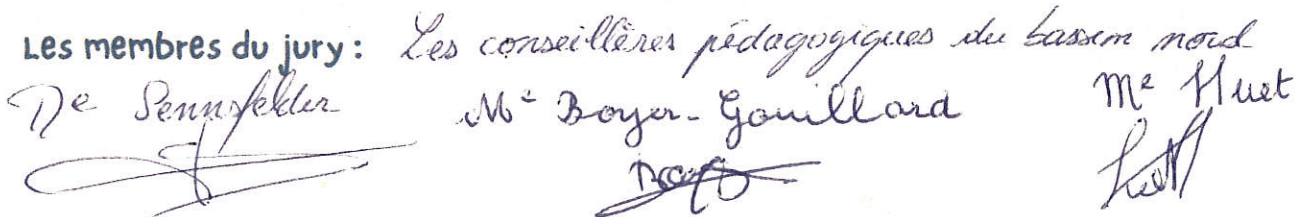 Les membres du jury : Les conseillères pédagogiques du bassin nord
Me Sennsfelder Me Boyer-Gouillard Me Huet